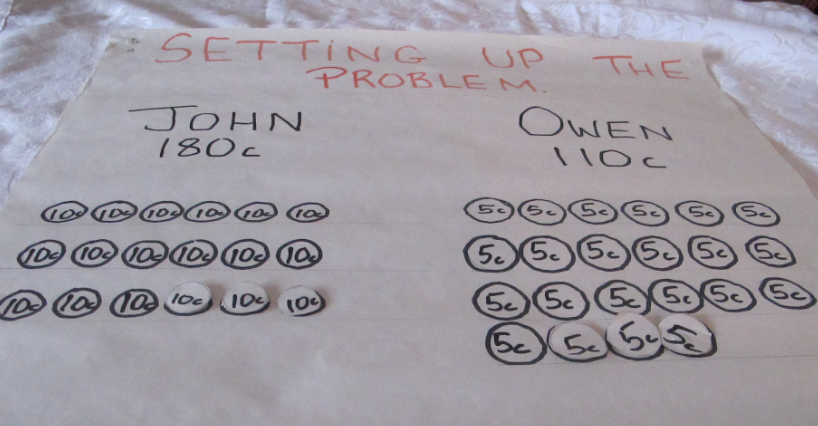 SETTING UP THE
PROBLEM.
JOHN
180c
OWEN
110c
10c 10c 10c 10c 10c 10c
10c 10c 10c 10c 10c 10c
10c 10c 10c 10c 10c 10c
5c 5c 5c 5c 5c 5c
5c 5c 5c 5c 5c 5c
5c 5c 5c 5c 5c 5c
5c 5c 5c 5c